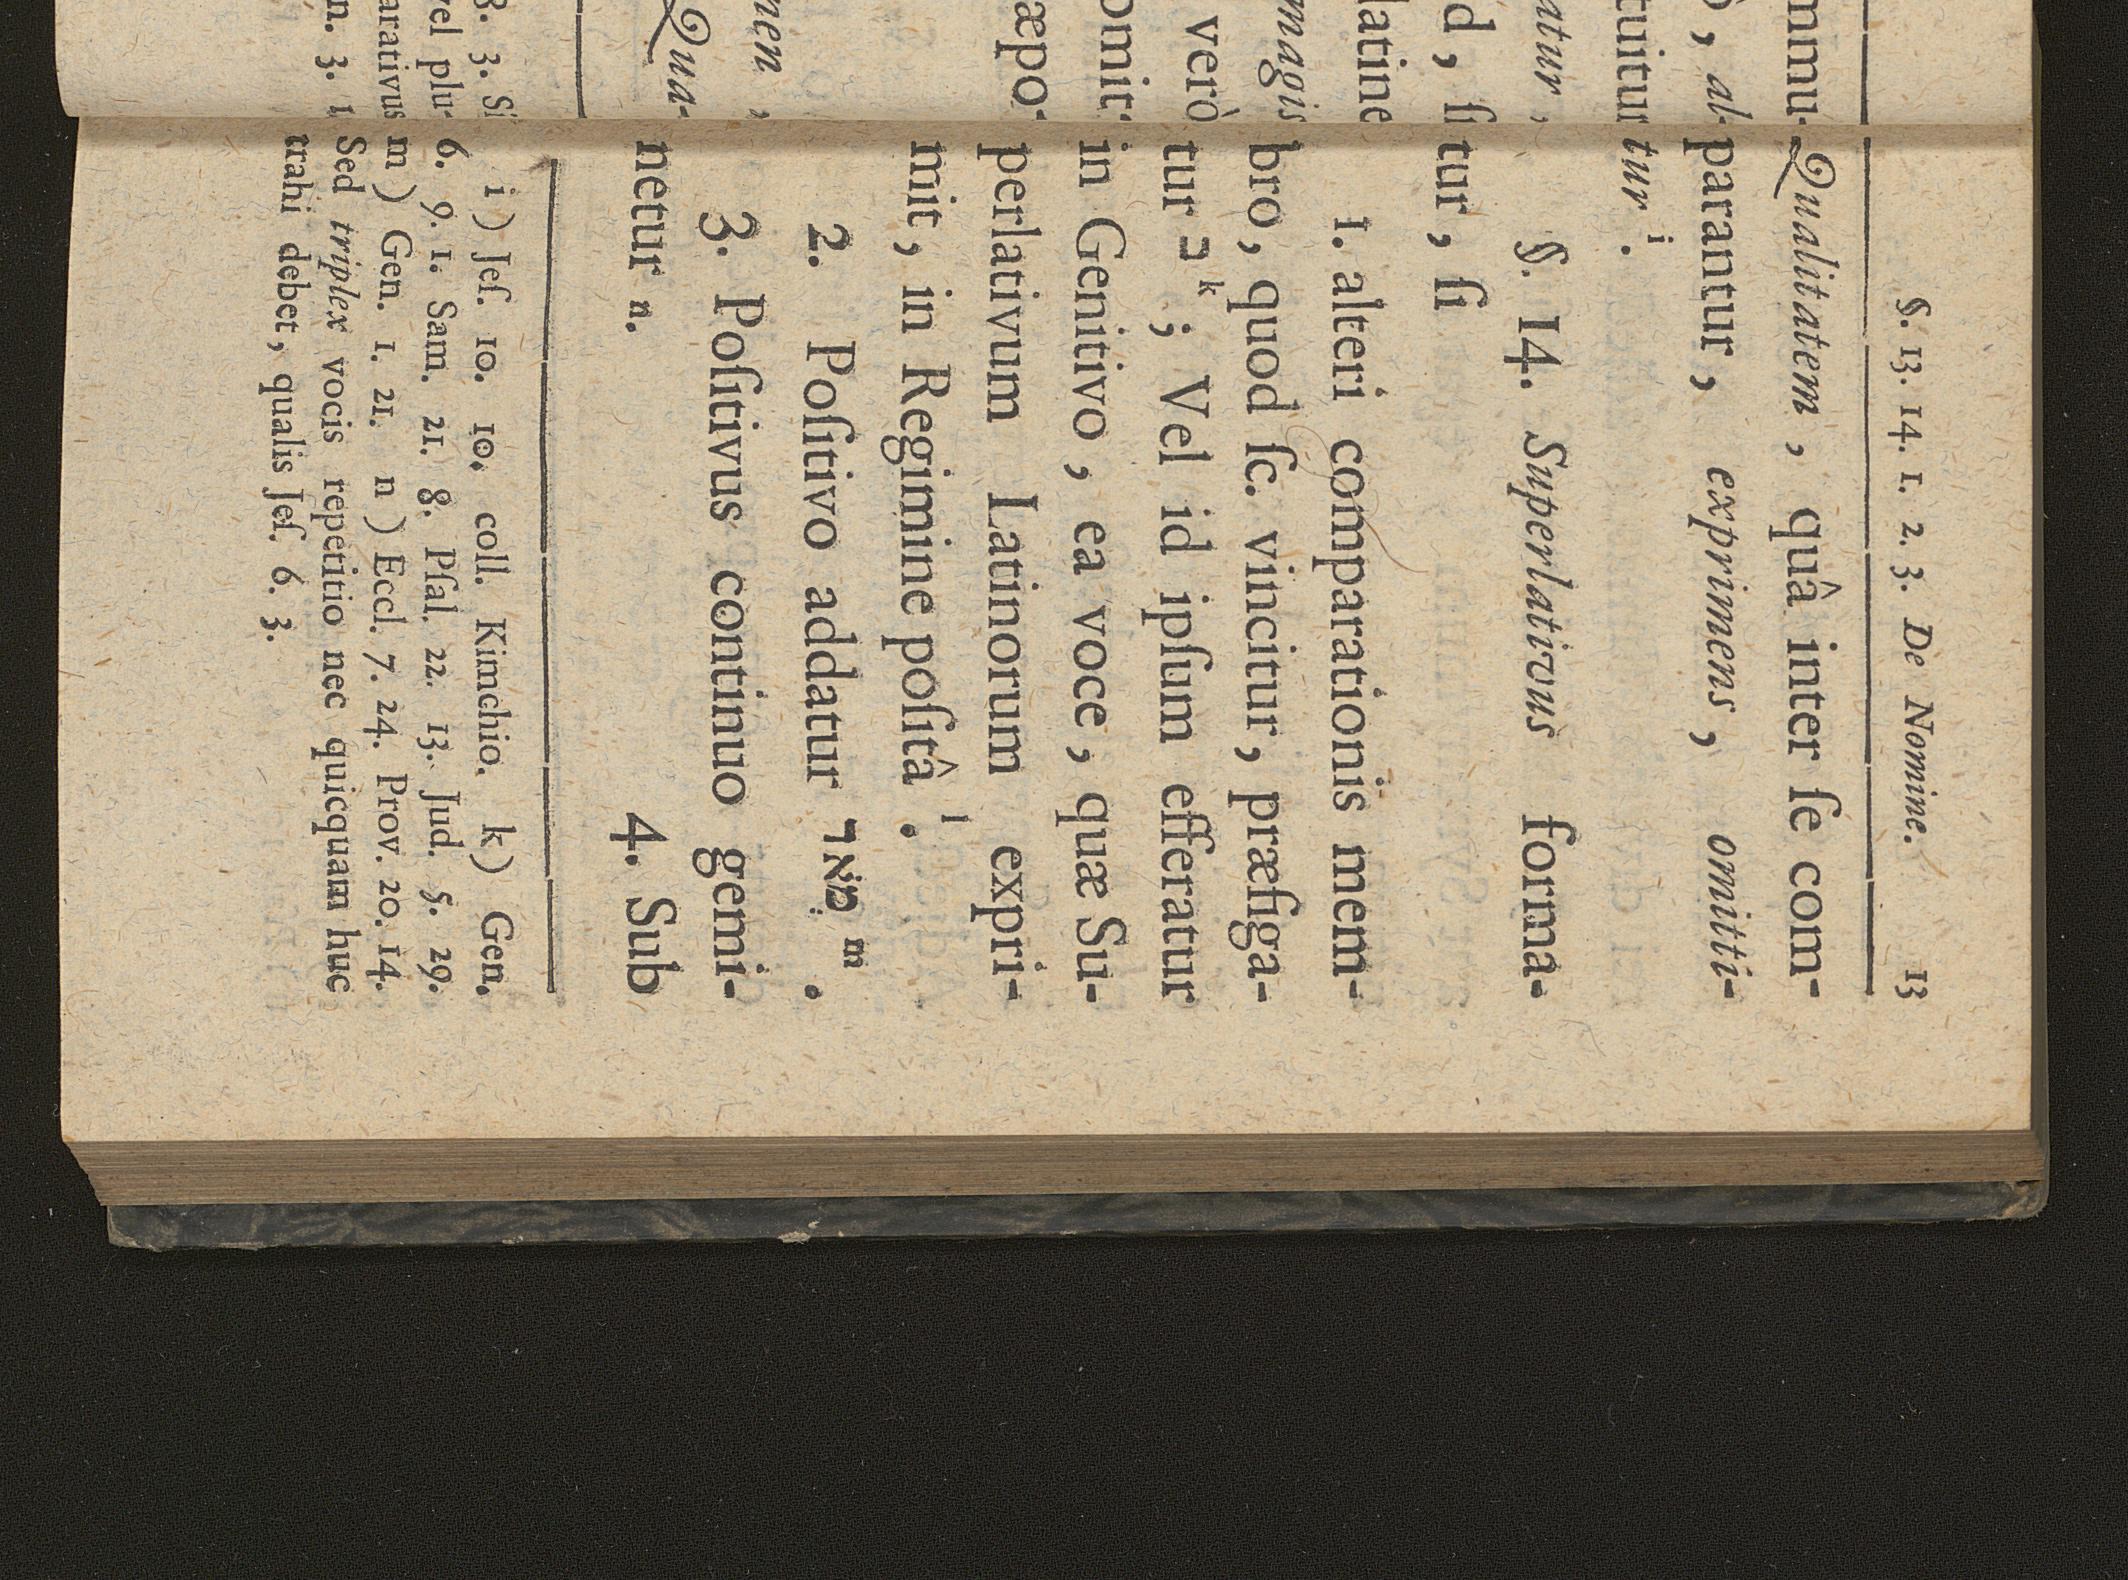 §. 13. 14. 1. 2. 3. De Nomine. 13
Qualitatem, quâ inter ſe com-
parantur, exprimens, omitti-
tur i.
§. 14. Superlativus forma-
tur, ſi
1. alteri comparationis mem-
bro, quod ſc. vincitur, præfiga-
tur ב k; Vel id ipſum efferatur
in Genitivo, ea voce, quæ Su-
perlativum Latinorum expri-
mit, in Regimine poſitâ l.
2. Poſitivo addatur מְאֹד m.
3. Poſitivus continuo gemi-
netur n.
4. Sub
i) Jeſ. 10. 10. coll. Kimchio. k) Gen.
6. 9. 1. Sam. 21. 8. Pſal. 22. 13. Jud. 5. 29.
m) Gen. 1. 21. n) Eccl. 7. 24. Prov. 20. 14.
Sed triplex vocis repetitio nec quicquam huc
trahi debet, qualis Jeſ. 6. 3.
mmu-
ò, al-
tuitur
atur,
d, ſi
latine
magis
verò
omit-
æpo-
men,
Qua-
8. 3. Si
vel plu-
arativus
n. 3. 1